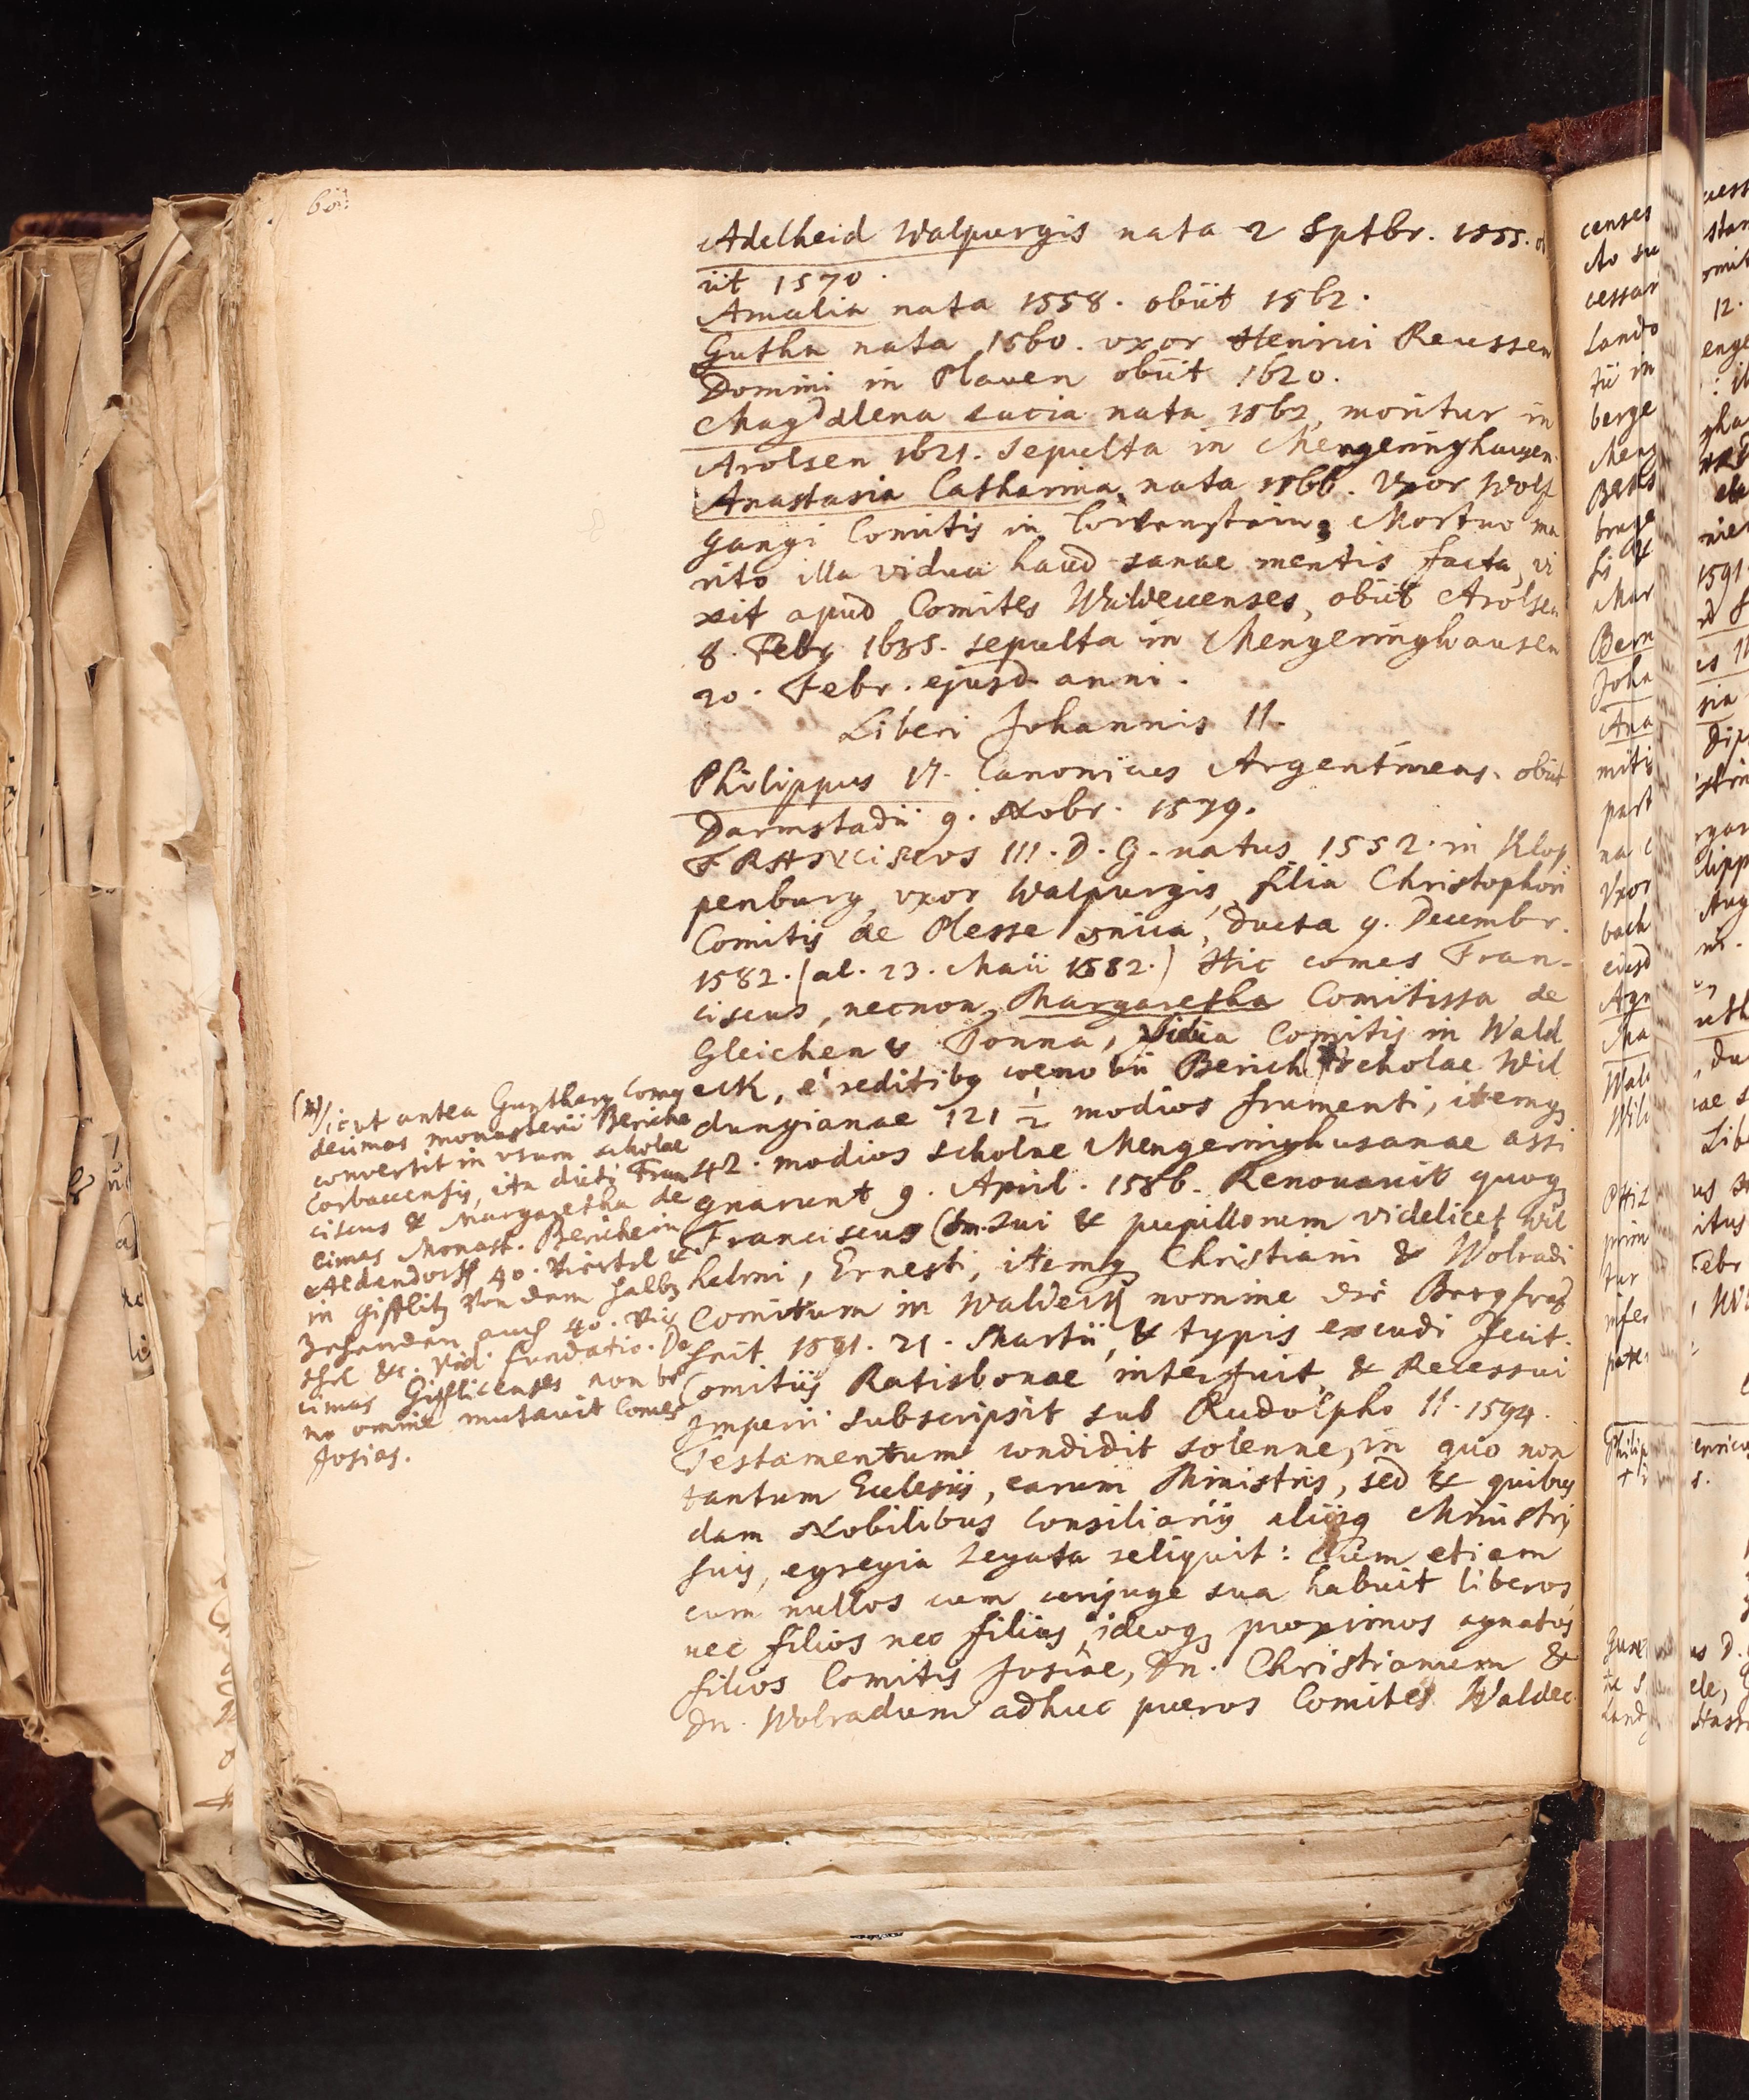 Adelheid Walpurgis nata 2 Sptbr. 1555.
iit 1570.
Amalia nata 1558. obiit 1562.
Gutha nata 1560. vxor Henrici Reussen
Domini in Plauen obiit 1620.
Magdalena Lucia nata 1562, moritur in
Arolsen 1621. sepulta in Mengeringhausen.
Anastasia Catharina, nata 1566. Vxor Wolf
gangi Comitis in Lowenstein, Mortuo ma
rito illa vidua haud sanae mentis facta, vi
xit apud Comites Waldecenses, obiit Arolsen
8. Febr. 1635. sepulta in Mengeringhausen
20. Febr. ejusd. anni.
Liberi Johannis II.
Philippus VI. Canonicus Argentinens. obiit
Darmstadii 9. Nobr. 1579.
FRANCISCVS III. D. G. natus 1552. in Klop
penburg, vxor Walpurgis, filia Christophori
Comitis de Plesse vnica, ducta 9. Decembr.
1582. (al. 23. Maii 1582.) Hic comes Fran-
ciscus, necnon Margaretha Comitissa de
Gleichen & Tonna, Vidua Comitis in Wald
eck, è reditibq coenobii Berich (*) scholae Wil
dungianae 121 1/2 modios frumenti, itemq
42. modios scholae Mengeringhusanae assi
gnarunt 9. April. 1586. Renouauit quoq
Franciscus sui & pupillorum videlicet Wil
helmi, Ernesti, itemq Christiani & Wolradi
Comitum in Waldeck nomine die Bergfrey
heit 1591. 21. Martii, & typis excudi fecit.
Comitiis Ratisbonae interfuit, & Recessui
Imperii subscripsit sub Rudolpho II. 1594.
Testamentum condidit solenne, in quo non
tantum Ecclesiis, earum Ministris, sed & quibus
dam Nobilibus Consiliariis aliisq Ministris
suis, egregia Legata reliquit: Cum etiam
cum nullos cum conjuge sua habuit liberos,
nec filios nec filias, ideoq proximos agnatos
filios Comitis Josiae, Dn. Christianum &
Dn. Wolradum adhuc pueros Comites Waldec
(*) sicut antea Guntherg Comes
decimas monasterii Beriche
convertit in vsum scholae
Corbacensis, ita dicti Fran
ciscus & Margaretha de
cimas Monast. Berichein
Aldendorff 40. Viertel &
in Gifflitz Von dem halbe
Zehenden auch 40. Vier
thel &c. vid. fundatio. De
cimas Gifflicenses non bo
no omine mutauit Comes
Josias.